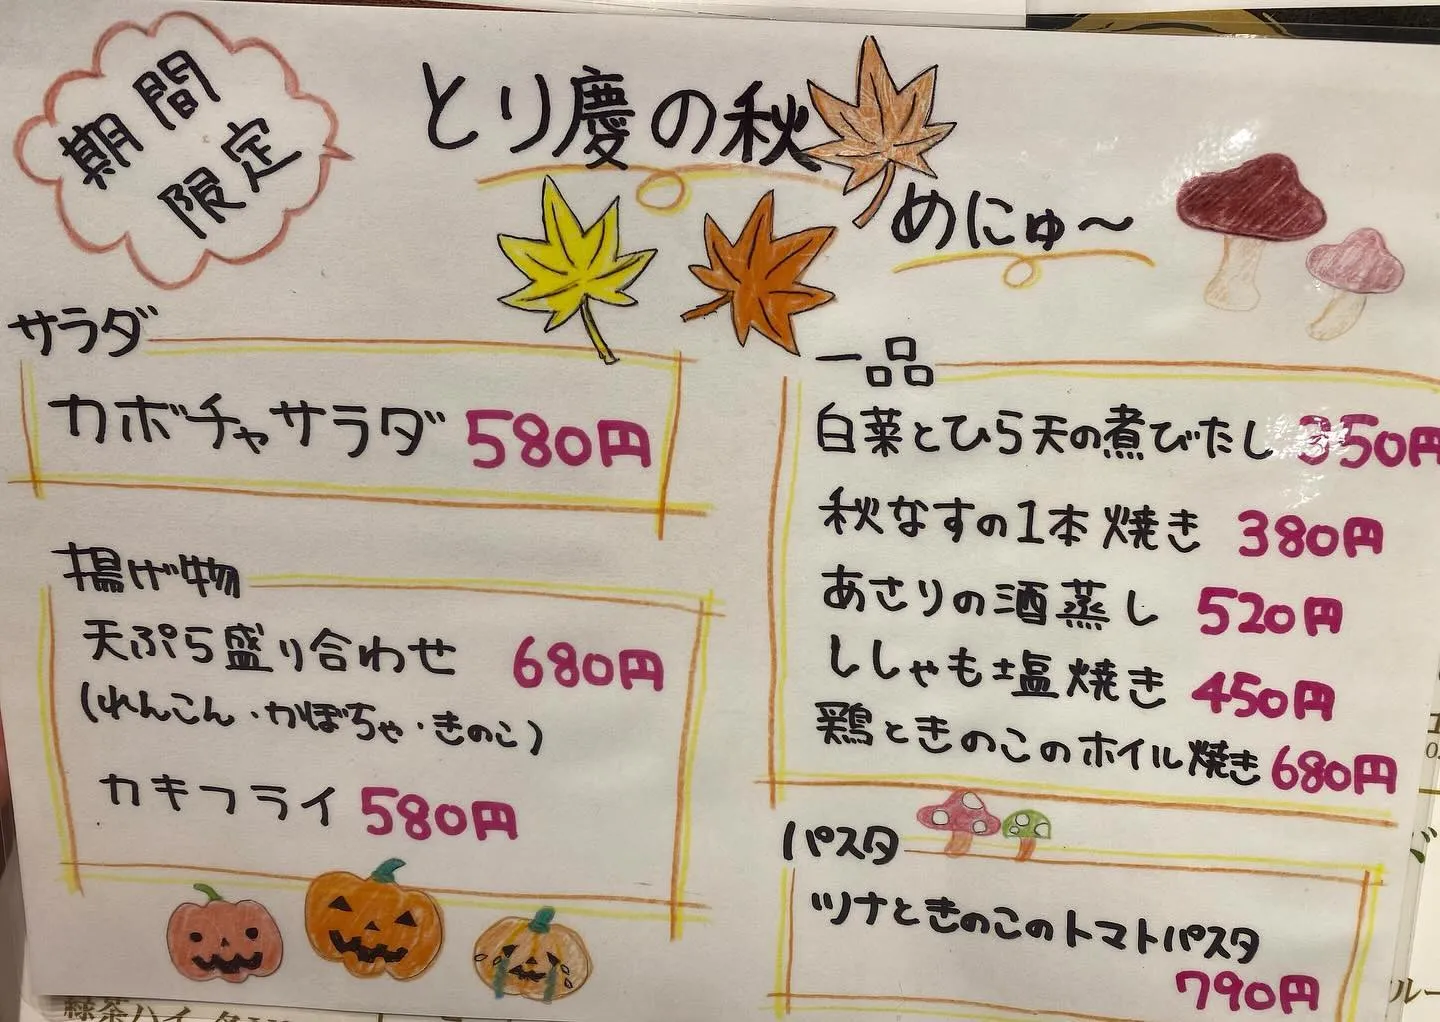 期間
限定
とり慶の秋
めにゅ〜
サラダ
カボチャサラダ 580円
揚げ物
天ぷら盛り合わせ 680円
(れんこん・かぼちゃ・きのこ)
カキフライ 580円
一品
白菜とひら天の煮びたし 350円
秋なすの1本焼き 380円
あさりの酒蒸し 520円
ししゃも塩焼き 450円
鶏ときのこのホイル焼き 680円
パスタ
ツナときのこのトマトパスタ
790円
緑茶ハイ